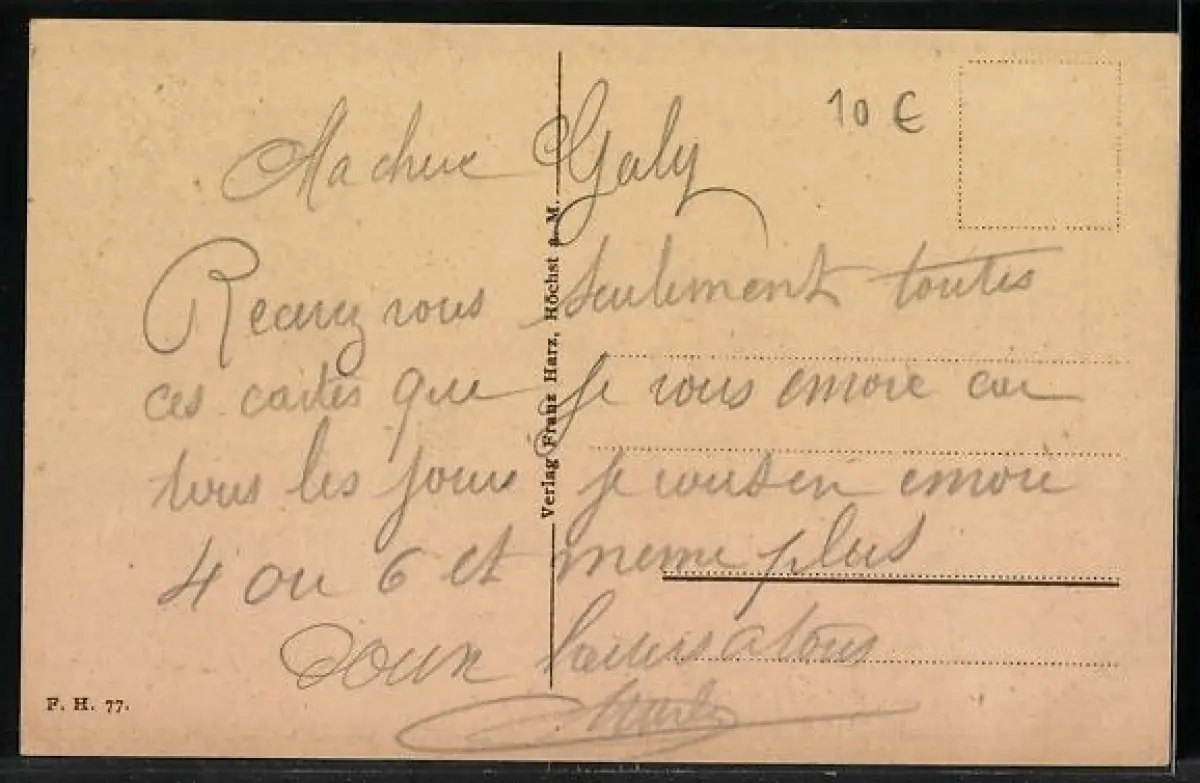 10 €
Ma chere Galy
Recevez vous seulement toutes
ces cartes que je vous envoie car
tous les jours je vous en envoie
4 ou 6 et meme plus
Doux baisers a tous
Verlag Franz Harz, Höchst a. M.
F. H. 77.